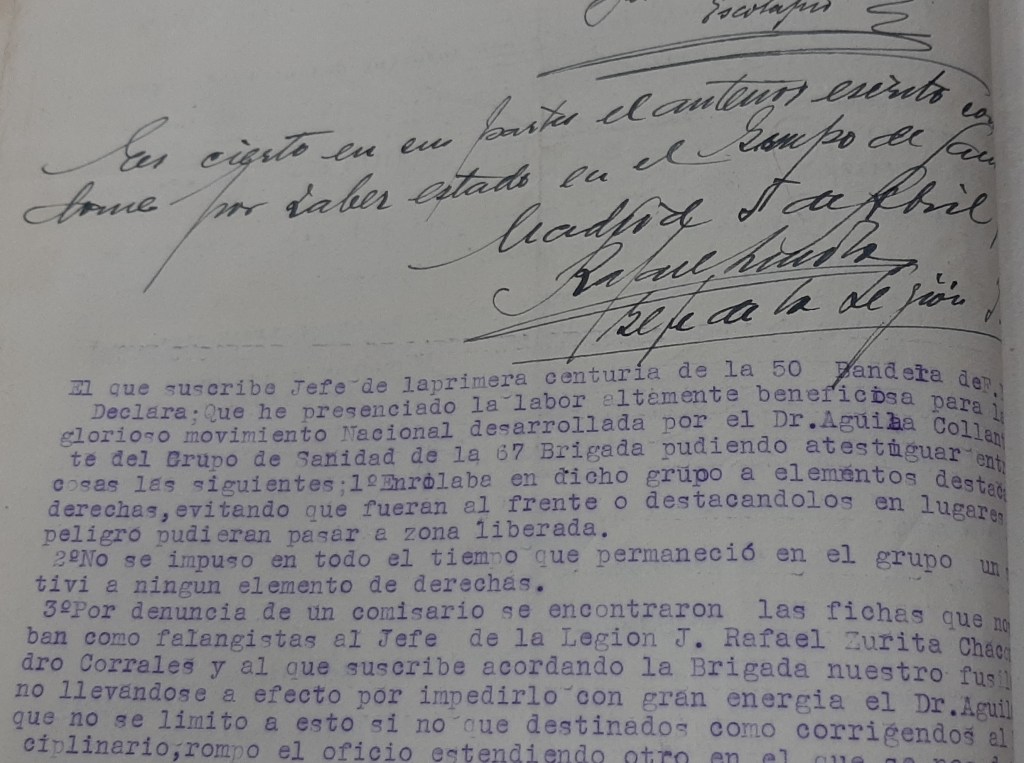 Escolapio
Es cierto en sus partes el anterior escrito
por haber estado en el Grupo de
Madrid 5 de Abril
Rafael Zurita
Jefe de la Legión J.
El que suscribe Jefe de laprimera centuria de la 50 Bandera deF.
Declara;Que he presenciado la labor altamente beneficiosa para
glorioso movimiento Nacional desarrollada por el Dr.Aguila Collan
te del Grupo de Sanidad de la 67 Brigada pudiendo atestiguar ent
cosas las siguientes;1ºEnrolaba en dicho grupo a elementos destac
derechas,evitando que fueran al frente o destacandolos en lugares
peligro pudieran pasar a zona liberada.
2ºNo se impuso en todo el tiempo que permaneció en el grupo un
tivi a ningun elemento de derechas.
3ºPor denuncia de un comisario se encontraron las fichas que no
ban como falangistas al Jefe de la Legion J. Rafael Zurita Chac
dro Corrales y al que suscribe acordando la Brigada nuestro fusil
no llevandose a efecto por impedirlo con gran energia el Dr.Aguil
que no se limito a esto si no que destinados como corrigendos al
ciplinario,rompo el oficio estendiendo otro en el que se